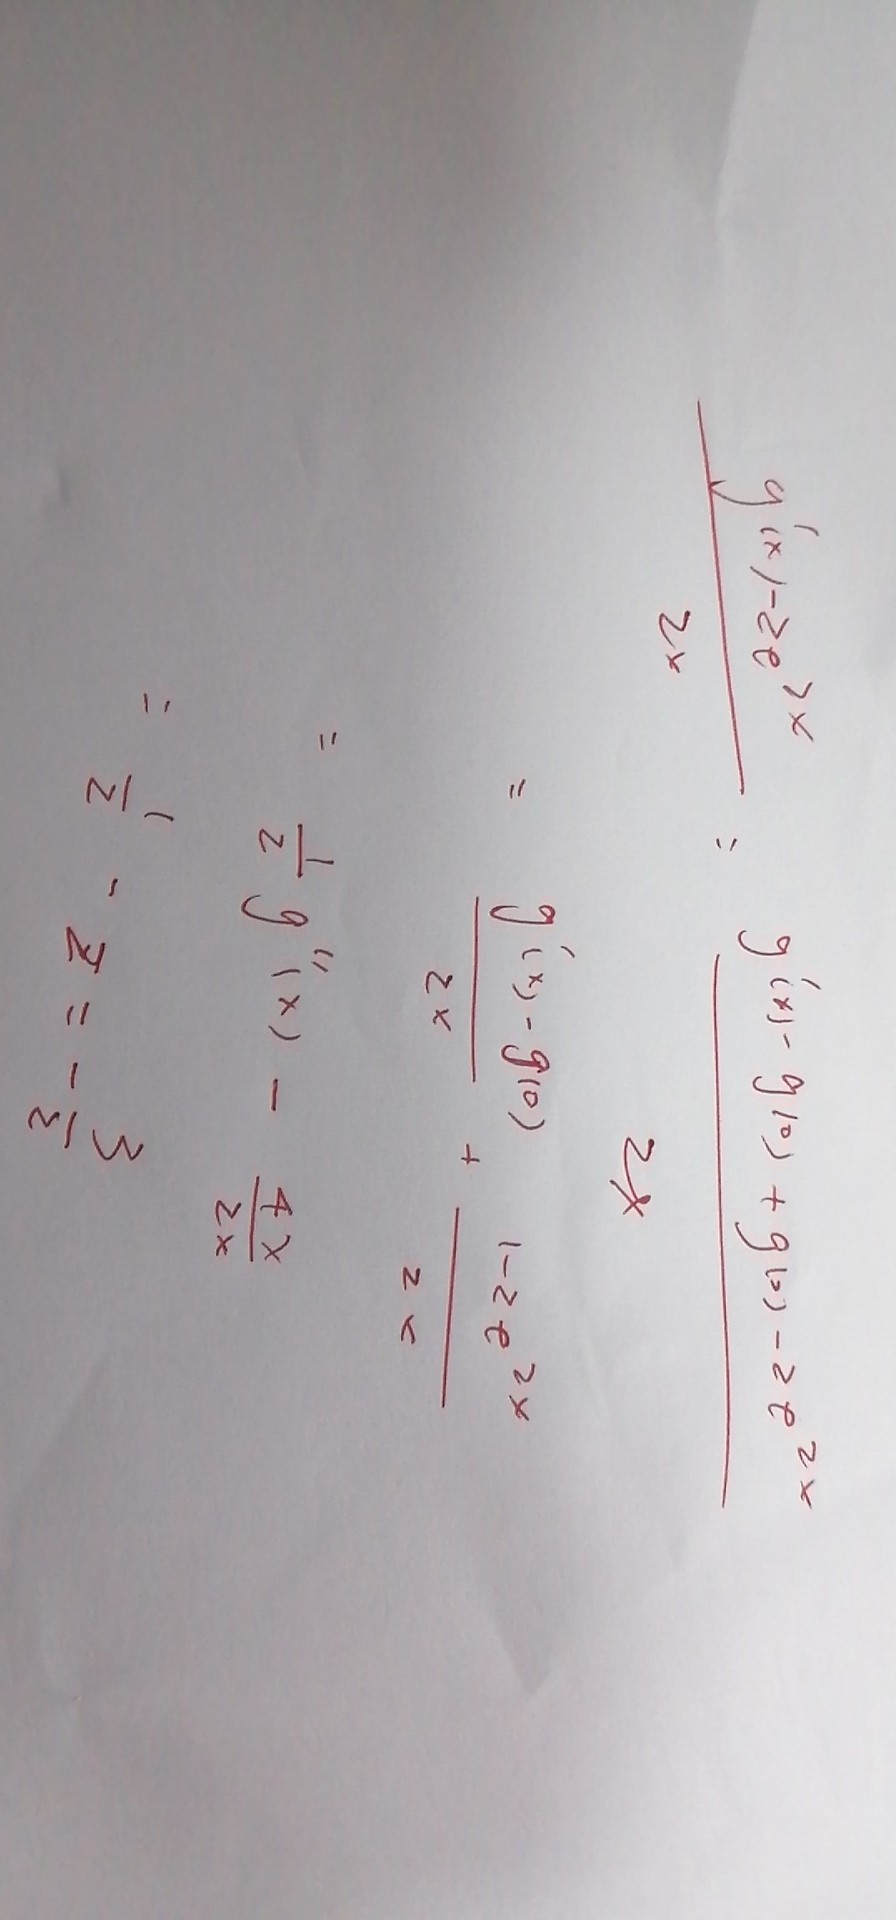 g'(x)-2e^2x / 2x = g'(x)-g(0)+g(0)-2e^2x / 2x
= g'(x)-g(0) / 2x + 1-2e^2x / 2x
= 1/2 g''(x) - 4x/2x
= 1/2 - 2 = -3/2